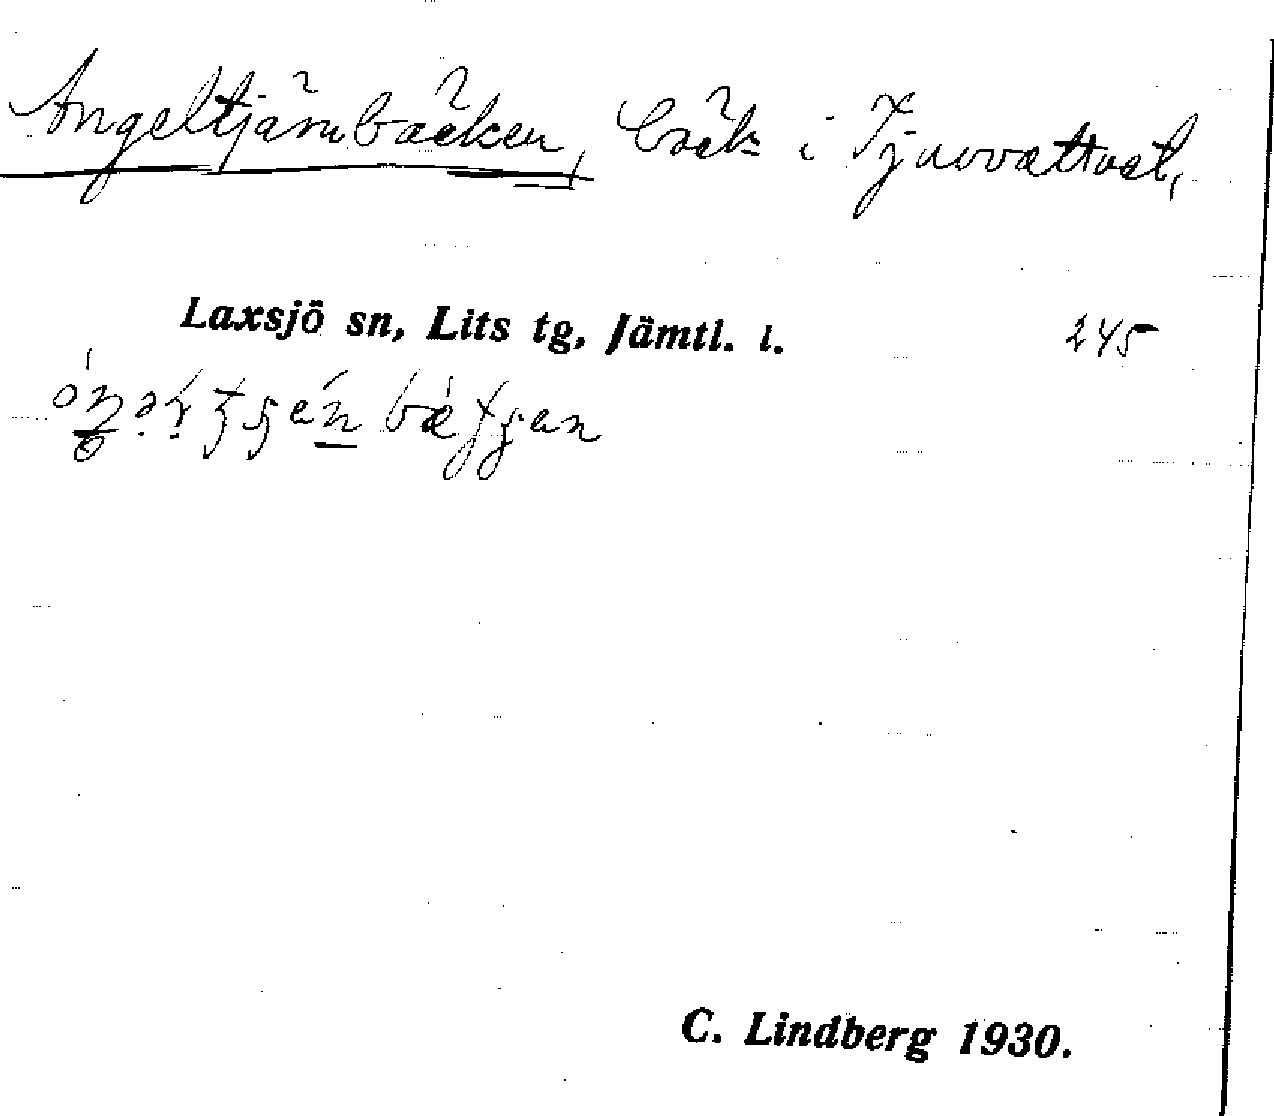 Angeltjärnbäcken, bäck i
Laxsjö sn, Lits tg, Jämtl. l. 245
C. Lindberg 1930.